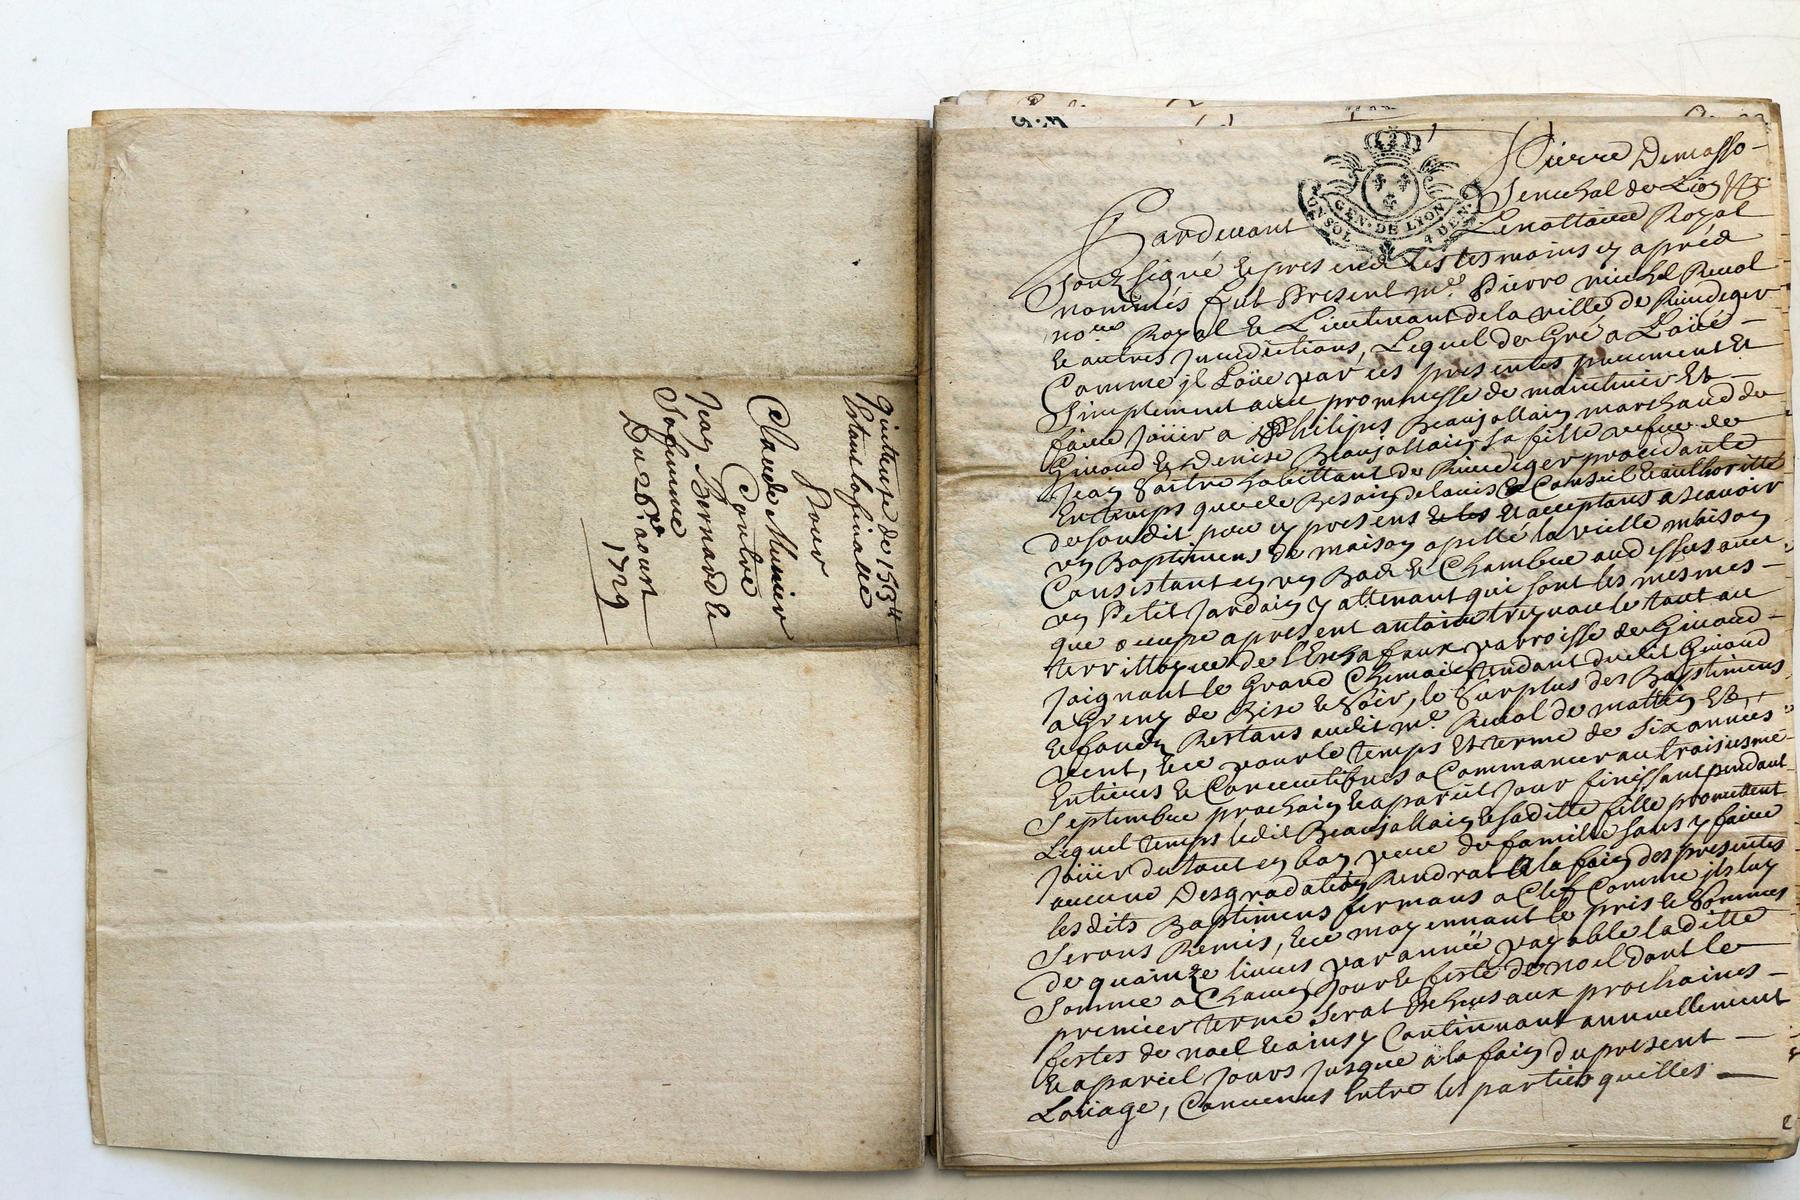 quittance de 153ᴸᴸ
Estant la finalle
Pour
Claude Munier
Contre
Jean Bernard &
Sa femme
Du 26e aoust
1729
GEN. DE LYON
UN SOL 4 DEN.
Pierre Demasso
Senechal de Lion
Pardevant Le nottaire Royal
Soubsigné & presence des tesmoins cy apréz
nommés fut Present Me. Pierre michel Reual
nore Royal & Lieutenant de la ville de Riuedeger
& autres Jurisdictions, Lequel de Gré a Loüé
Comme jl Loüe par ces presentes purement Et
Simplement auec prommesse de maintenir Et
faire Joüir a Philipes Beaujollain marchand de
Giuord & Denise Beaujollain sa fille vefue de
Jean habittant de Riuedeger procedante
En temps que de Besoin de l'auis Conseil & authoritté
de son dit pere cy presens & les Et acceptans a scauoir
vn Baptimens de maison apellé la vieille maison
Consistant en vn Bas & Chambre au dessus auec
vn Petit Jardain y attenant qui sont les mesmes
que occupe apresent antoine le tout au
territtoyre de parroisse de Giuord
Joignant le Grand Chemain tendant dudit Giuord
a de Bise & Soir, le Surplus des Baptimens
& fonds Restans audit Me Reual de mattin Et
vent, & ce pour le temps Et terme de Six années
Entieres & Consecutifues a Commancer au troisiesme
Septembre prochain & a pareil Jour finissant pendant
Lequel temps ledit Beaujollain & sa ditte fille promettent
Joüir du tout en bon pere de famille sans y faire
aucune Desgradation Rendrat a la fain des presentes
lesdits Baptimens fermans a Clef Comme jls luy
Serons Remis, & ce moyennant le pris & Sommes
de quainze liures par année payable laditte
Somme a Chacun Jour & feste de noel dont le
premier terme Serat Escheus aux prochaines
festes de noel & ainsy Continuant annuellement
& a pareil Jours Jusque a la fain du present
Loüage, Conuenus Entre les parties quelles